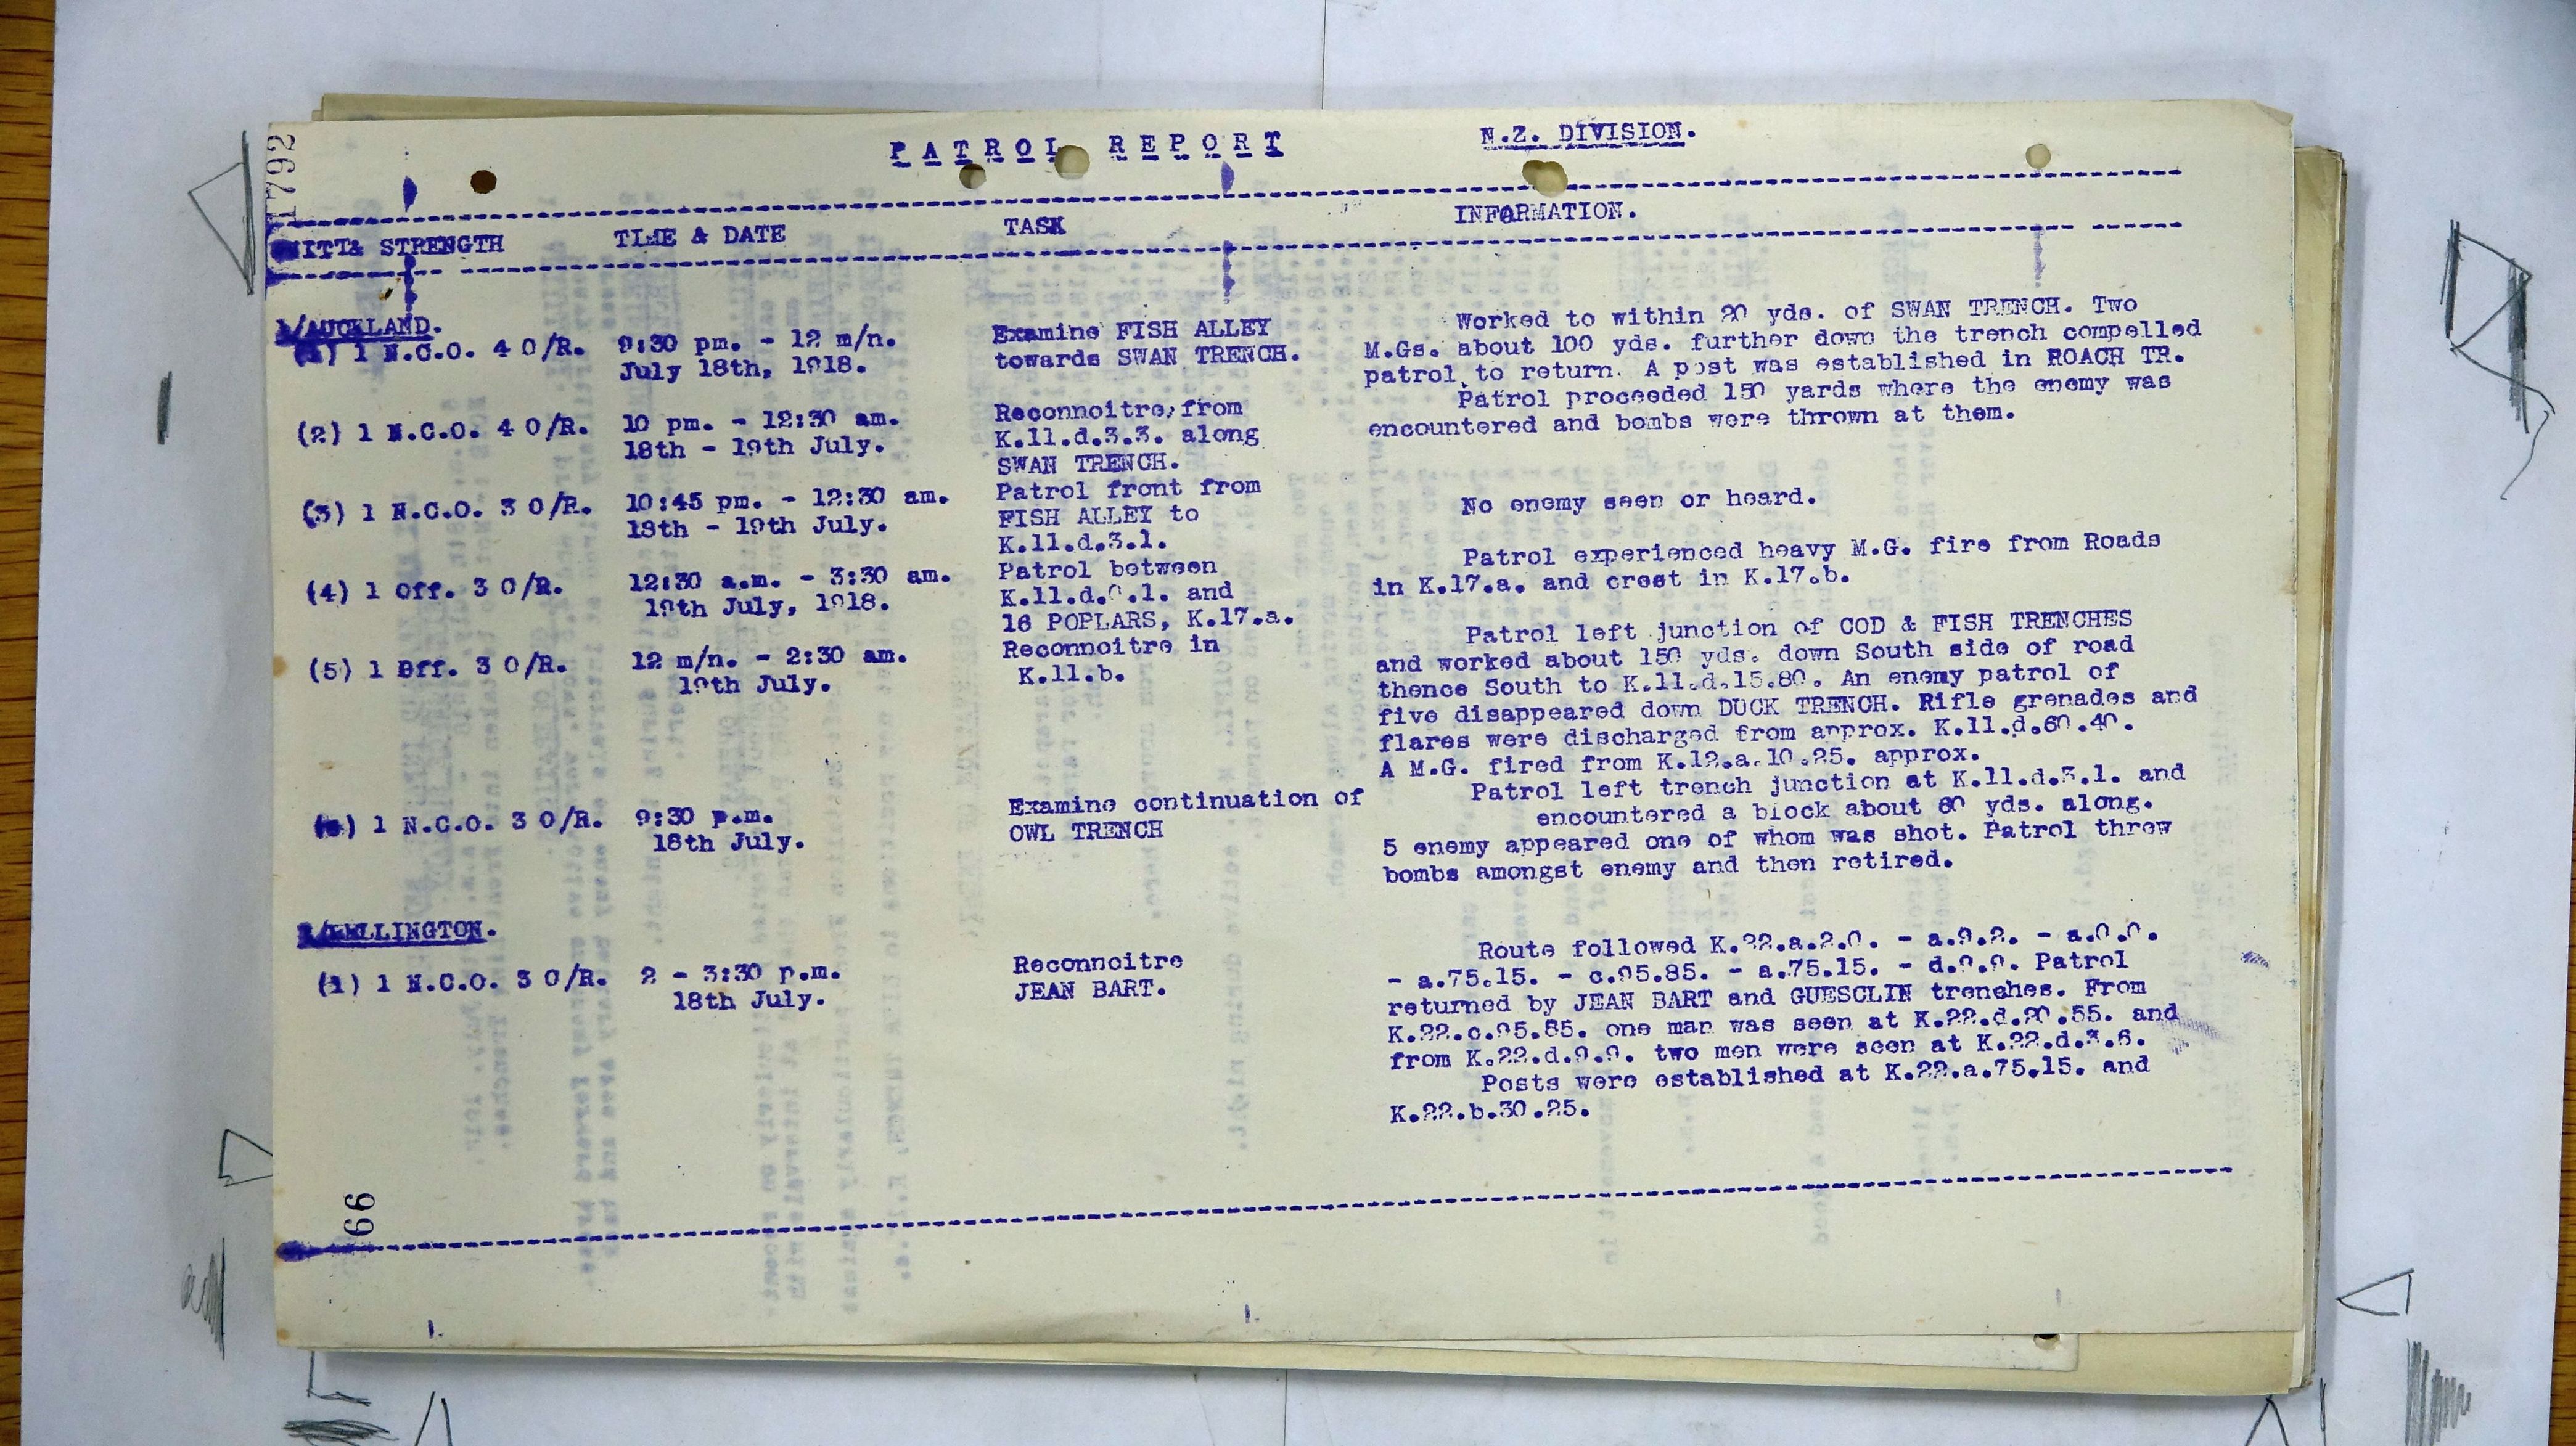 PATROL REPORT
N.Z. DIVISION.
1792
UNIT & STRENGTH TIME & DATE TASK INFORMATION.
1/AUCKLAND.
(1) 1 N.C.O. 4 O/R.
9:30 pm. - 12 m/n.
July 18th, 1918.
Examine FISH ALLEY
towards SWAN TRENCH.
Worked to within 20 yds. of SWAN TRENCH. Two
M.Gs. about 100 yds. further down the trench compelled
patrol to return. A post was established in ROACH TR.
(2) 1 N.C.O. 4 O/R.
10 pm. - 12:30 am.
18th - 19th July.
Reconnoitre from
K.11.d.3.3. along
SWAN TRENCH.
Patrol proceeded 150 yards where the enemy was
encountered and bombs were thrown at them.
(3) 1 N.C.O. 3 O/R.
10:45 pm. - 12:30 am.
18th - 19th July.
Patrol front from
FISH ALLEY to
K.11.d.3.1.
No enemy seen or heard.
(4) 1 Off. 3 O/R.
12:30 a.m. - 3:30 am.
19th July, 1918.
Patrol between
K.11.d.0.1. and
16 POPLARS, K.17.a.
Patrol experienced heavy M.G. fire from Roads
in K.17.a. and crest in K.17.b.
(5) 1 Off. 3 O/R.
12 m/n. - 2:30 am.
19th July.
Reconnoitre in
K.11.b.
Patrol left junction of COD & FISH TRENCHES
and worked about 150 yds. down South side of road
thence South to K.11.d.15.80. An enemy patrol of
five disappeared down DUCK TRENCH. Rifle grenades and
flares were discharged from approx. K.11.d.60.40.
A M.G. fired from K.12.a.10.25. approx.
(6) 1 N.C.O. 3 O/R.
9:30 p.m.
18th July.
Examine continuation of
OWL TRENCH
Patrol left trench junction at K.11.d.3.1. and
encountered a block about 60 yds. along.
5 enemy appeared one of whom was shot. Patrol threw
bombs amongst enemy and then retired.
WELLINGTON.
(1) 1 N.C.O. 3 O/R.
2 - 3:30 p.m.
18th July.
Reconnoitre
JEAN BART.
Route followed K.22.a.2.0. - a.9.2. - a.0.0.
- a.75.15. - c.95.85. - a.75.15. - d.9.9. Patrol
returned by JEAN BART and GUESCLIN trenches. From
K.22.c.95.85. one man was seen at K.22.d.20.55. and
from K.22.d.9.9. two men were seen at K.22.d.3.6.
Posts were established at K.22.a.75.15. and
K.22.b.30.25.
66